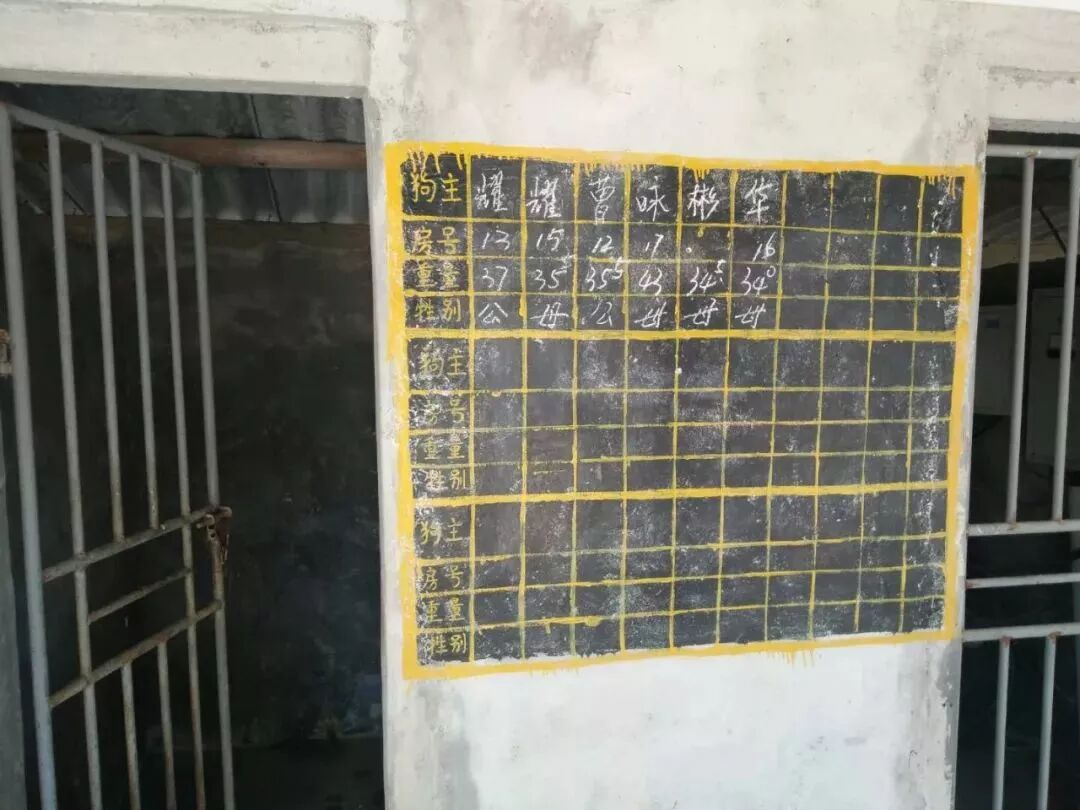 狗主 耀 耀 曹 咏 彬 华
房号 13 15 12 17 16
重量 37 35⁵ 35⁵ 43 34⁵ 34⁰
牲别 公 母 公 母 母 母
狗主
房号
重量
牲别
狗主
房号
重量
牲别